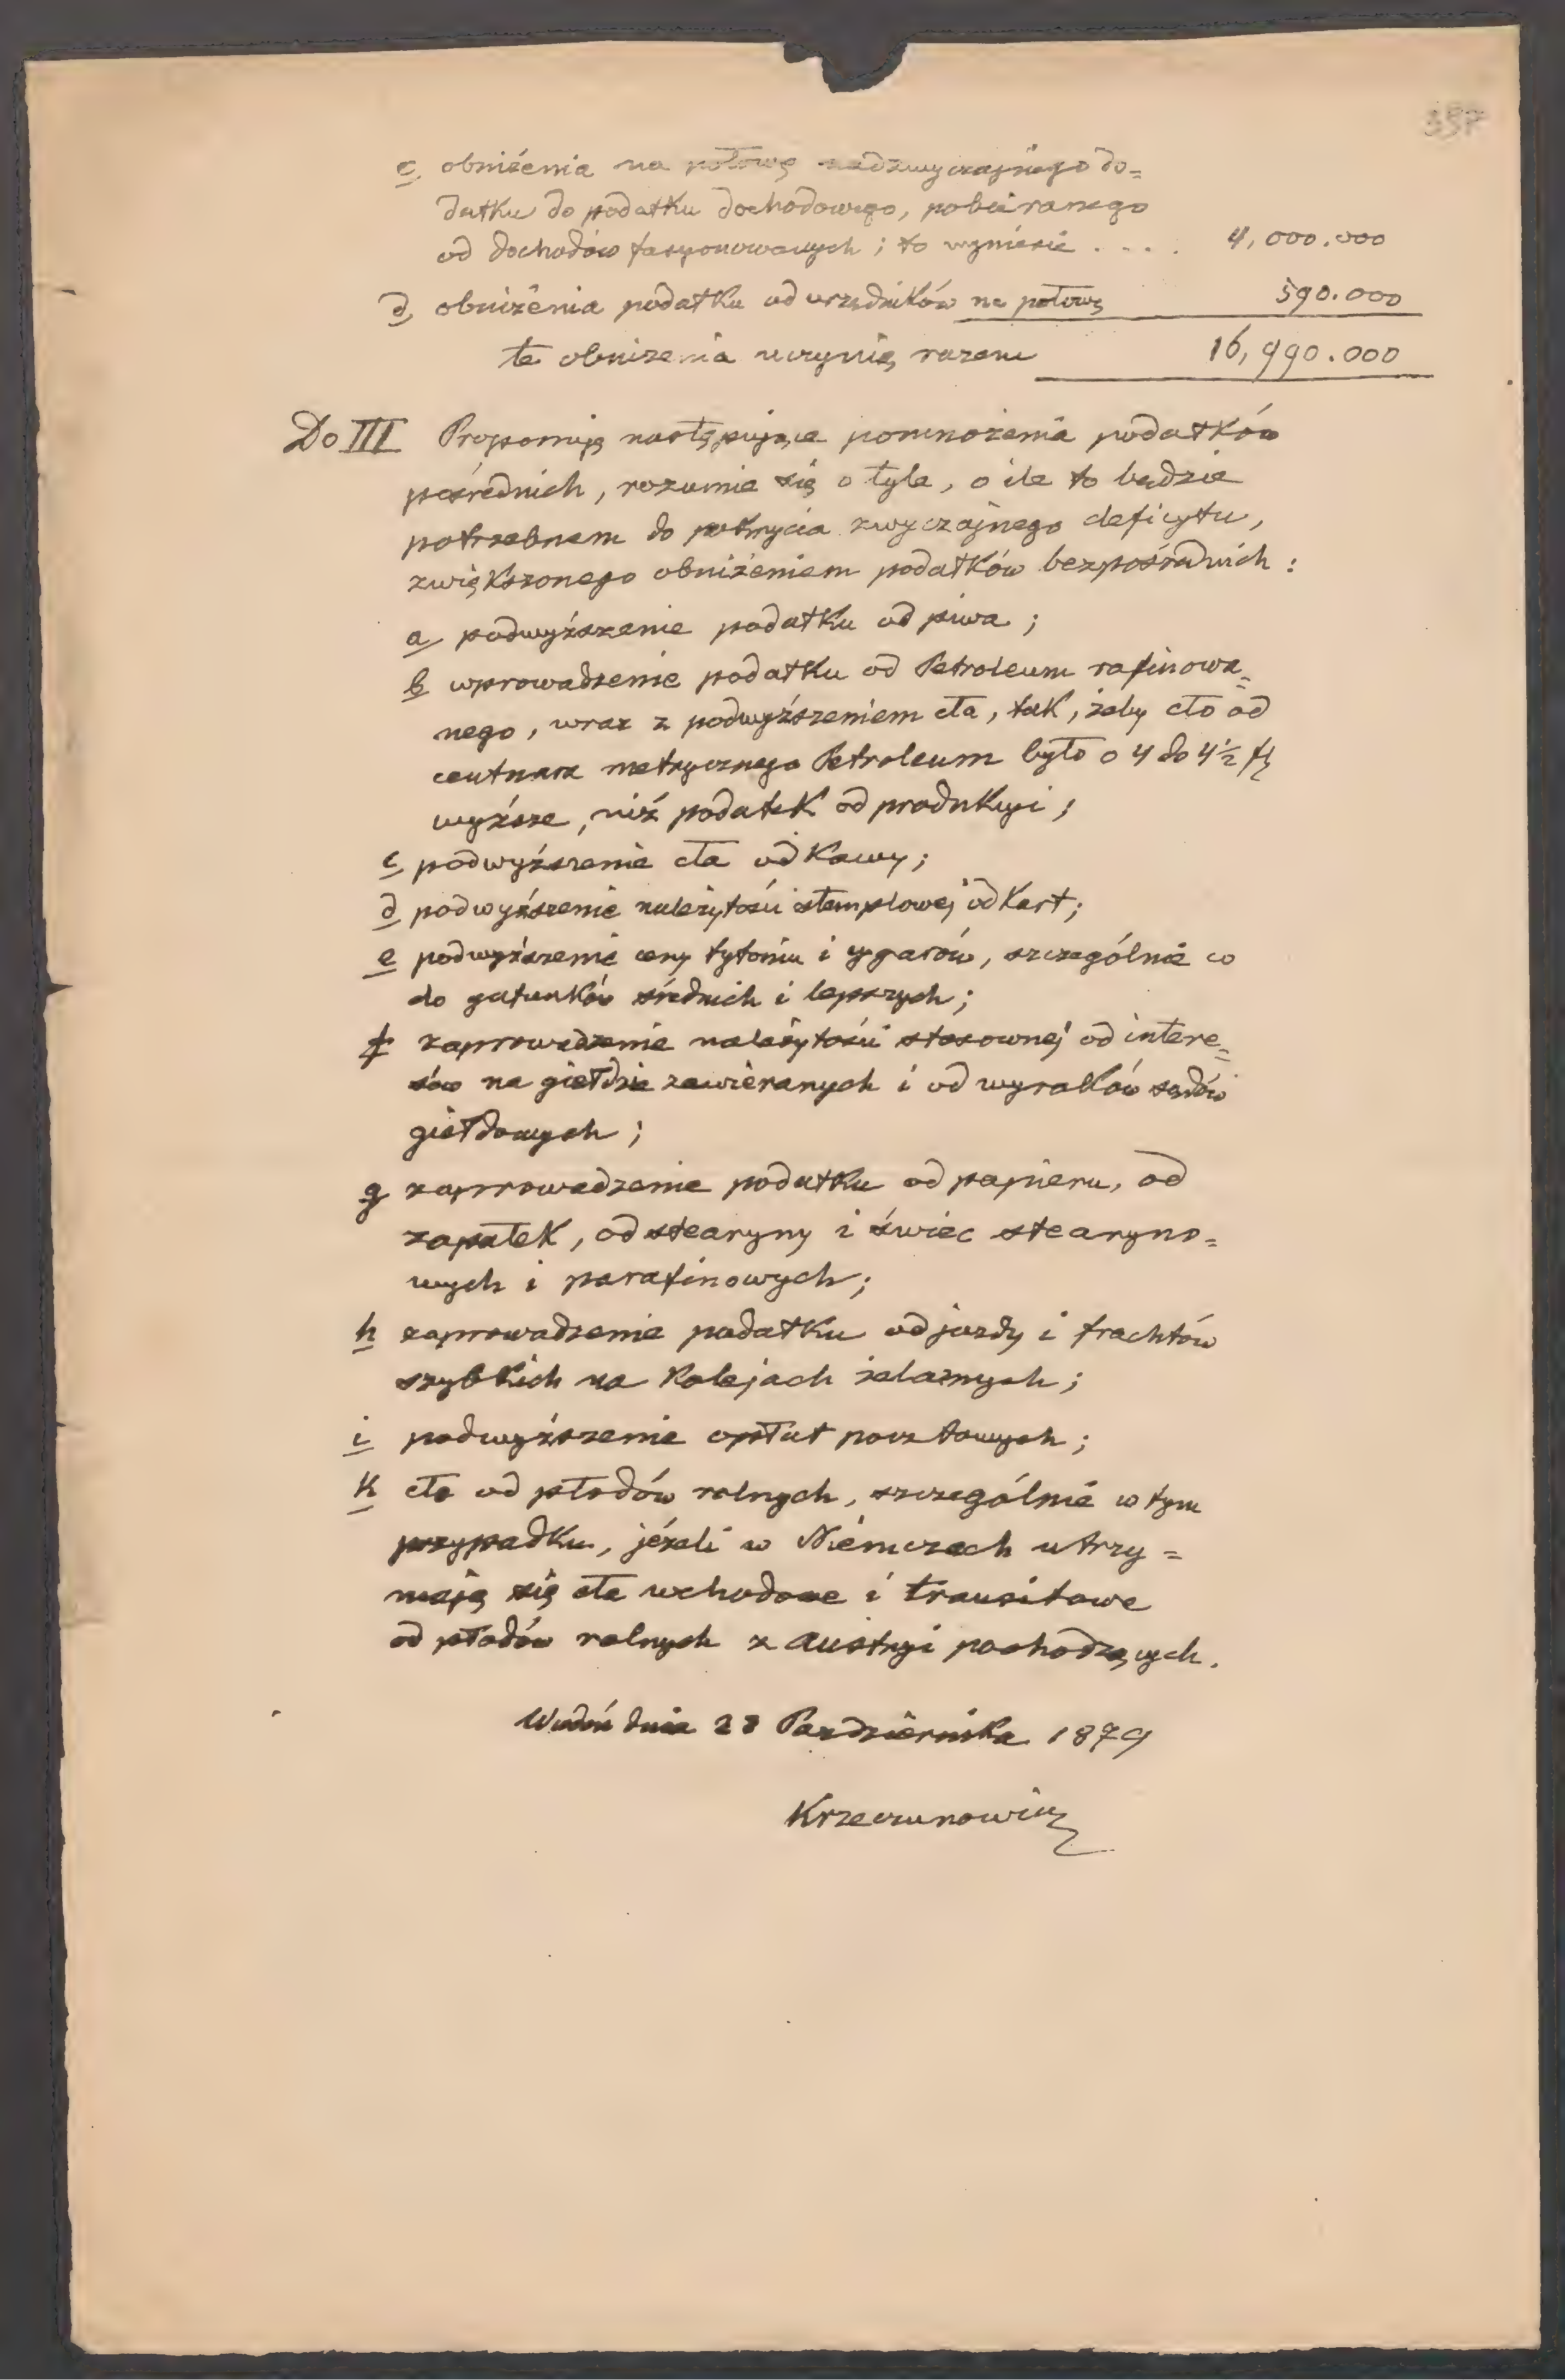 357
c, obniżenia na połowę nadzwyczajnego do=
datku do podatku dochodowego, pobieranego
od dochodów fasyonowanych; to wyniesie . . . . 4,000.000
d, obniżenia podatku od urzędników na połowę 590.000
te obniżenia uczynią razem 16,990.000
Do III Proponuję następujące pomnożenia podatków
pośrednich, rozumie się o tyle, o ile to będzie
potrzebnem do pokrycia zwyczajnego deficytu,
zwiększonego obniżeniem podatków bezpośrednich :
a podwyższenie podatku od piwa ;
b wprowadzenie podatku od Petroleum rafinowa=
nego, wraz z podwyższeniem cła, tak, żeby cło od
centnara metrycznego Petroleum było o 4 do 4½ fl
wyższe, niż podatek od produkcyi ;
c podwyższenie cła od Kawy;
d podwyższenie należytości stemplowej od Kart;
e podwyższenie ceny tytoniu i cygarów, szczególnie co
do gatunków średnich i lepszych;
f zaprowadzenie należytości stosownej od intere=
sów na giełdzie zawieranych i od wyroków sądów
giełdowych ;
g zaprowadzenie podatku od papieru, od
zapałek, od stearyny i świec stearyno=
wych i parafinowych;
h zaprowadzenie podatku od jazdy i frachtów
szybkich na Kolejach żelaznych;
i podwyższenie opłat pocztowych;
k cło od płodów rolnych, szczególnie w tym
przypadku, jeżeli w Niemczech utrzy=
mają się cła wchodowe i transitowe
od płodów rolnych z Austryi pochodzących.
Wiedeń dnia 28 Października 1879
Krzeczunowicz